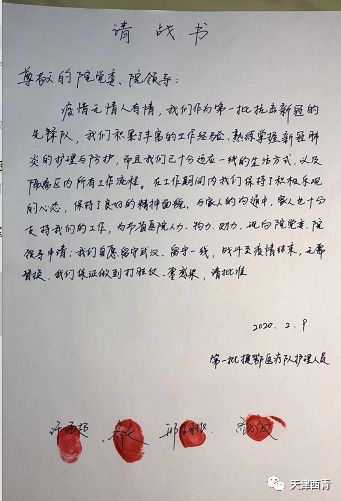 请战书
尊敬的院党委、院领导：
疫情无情人有情，我们作为第一批抗击新冠的
先锋队，我们积累了丰富的工作经验，熟练掌握新冠肺
炎的护理与防护，而且我们已十分适应一线的生活方式，以及
隔离区内所有工作流程。在工作期间内我们保持了积极乐观
的心态，保持了良好的精神面貌，与家人的沟通中，家人也十分
支持我们的工作，为节省医院人力、物力、财力，现向院党委、院
领导申请：我们自愿留守武汉，留守一线，战斗至疫情结束，无需
替换，我们保证做到打胜仗、零感染，请批准
2020.2.9
第一批援鄂医疗队护理人员
天津西青